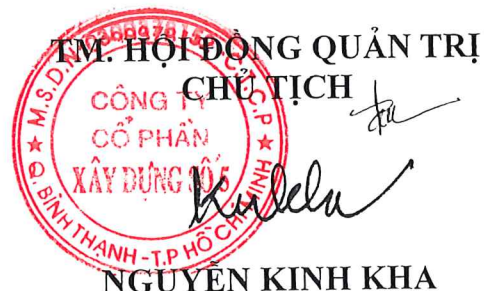 TM. HỘI ĐỒNG QUẢN TRỊ
CHỦ TỊCH
CÔNG TY
CỔ PHẦN
XÂY DỰNG SỐ 5
Q. BÌNH THẠNH - T.P HỒ CHÍ MINH
NGUYỄN KINH KHA